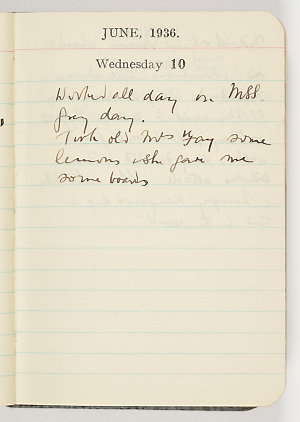 JUNE, 1936.
Wednesday 10
Worked all day on MSS.
Gray day.
Took old Mrs Gay some
lemons & she gave me
some boards